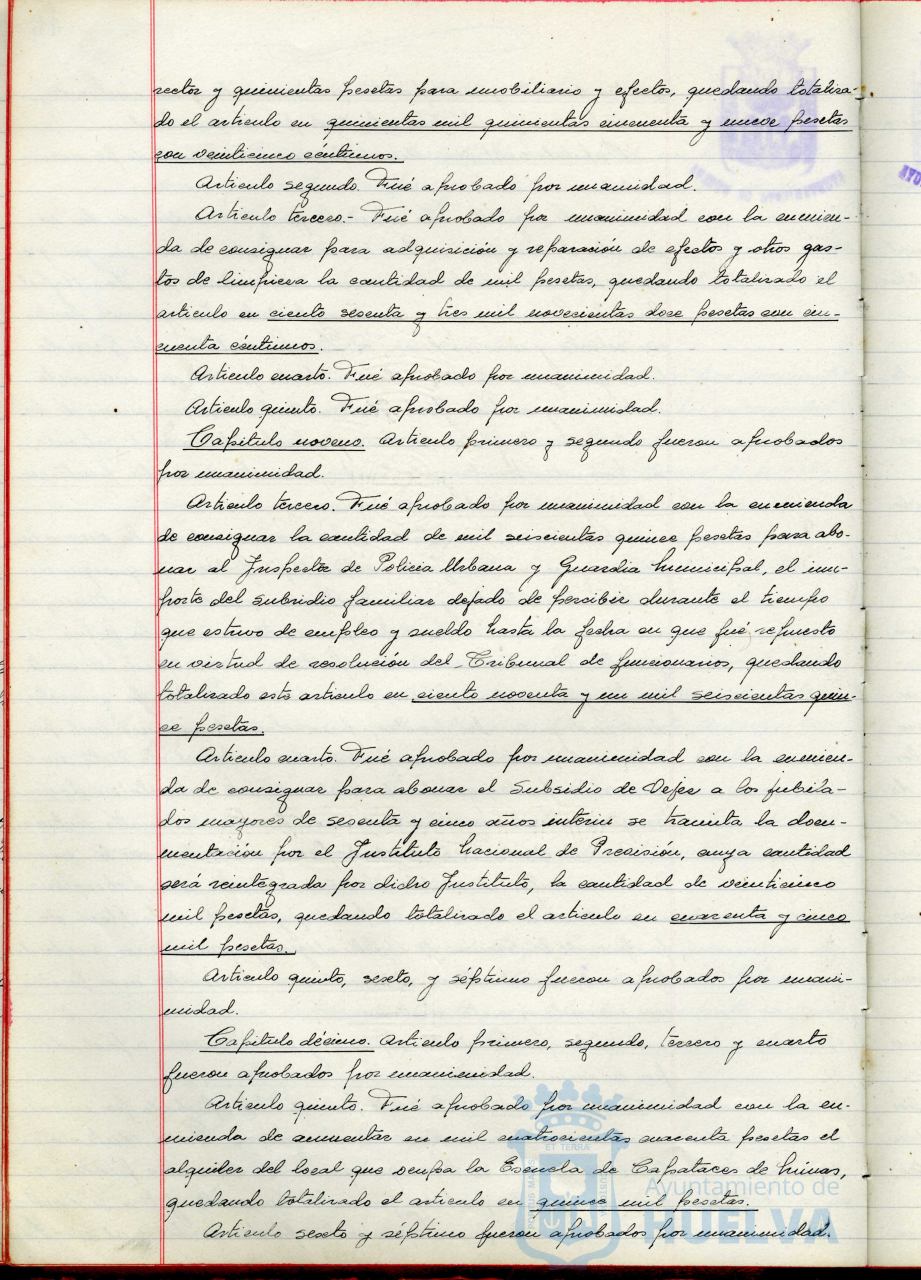 rector y quinientas pesetas para mobiliario y efectos, quedando totaliza-
do el articulo en quinientas mil quinientas cincuenta y nueve pesetas
con veinticinco céntimos.
Articulo segundo. Fué aprobado por unanimidad.
Articulo tercero.- Fué aprobado por unanimidad con la enmien-
da de consignar para adquisición y reparación de efectos y otros gas-
tos de limpieza la cantidad de mil pesetas, quedando totalizado el
articulo en ciento sesenta y tres mil novecientas doce pesetas con cin-
cuenta céntimos.
Articulo cuarto. Fué aprobado por unanimidad.
Articulo quinto. Fué aprobado por unanimidad.
Capitulo noveno. Articulo primero y segundo fueron aprobados
por unanimidad.
Articulo tercero. Fué aprobado por unanimidad con la enmienda
de consignar la cantidad de mil seiscientas quince pesetas para abo-
nar al Inspector de Policia Urbana y Guardia Municipal, el im-
porte del subsidio familiar dejado de percibir durante el tiempo
que estuvo de empleo y sueldo hasta la fecha en que fué repuesto
en virtud de resolución del Tribunal de funcionarios, quedando
totalizado este articulo en ciento noventa y un mil seiscientas quin-
ce pesetas.
Articulo cuarto. Fué aprobado por unanimidad con la enmien-
da de consignar para abonar el Subsidio de Vejez a los jubila-
dos mayores de sesenta y cinco años interin se tramita la docu-
mentación por el Instituto Nacional de Previsión, cuya cantidad
será reintegrada por dicho Instituto, la cantidad de veinticinco
mil pesetas, quedando totalizado el articulo en cuarenta y cinco
mil pesetas.
Articulo quinto, sexto, y séptimo fueron aprobados por unani-
midad.
Capitulo décimo. Articulo primero, segundo, tercero y cuarto
fueron aprobados por unanimidad.
Articulo quinto. Fué aprobado por unanimidad con la en-
mienda de aumentar en mil cuatrocientas cuarenta pesetas el
alquiler del local que ocupa la Escuela de Capataces de Minas,
quedando totalizado el articulo en quince mil pesetas.
Articulo sexto y séptimo fueron aprobados por unanimidad.
ET TERRÆ
Ayuntamiento de
HUELVA